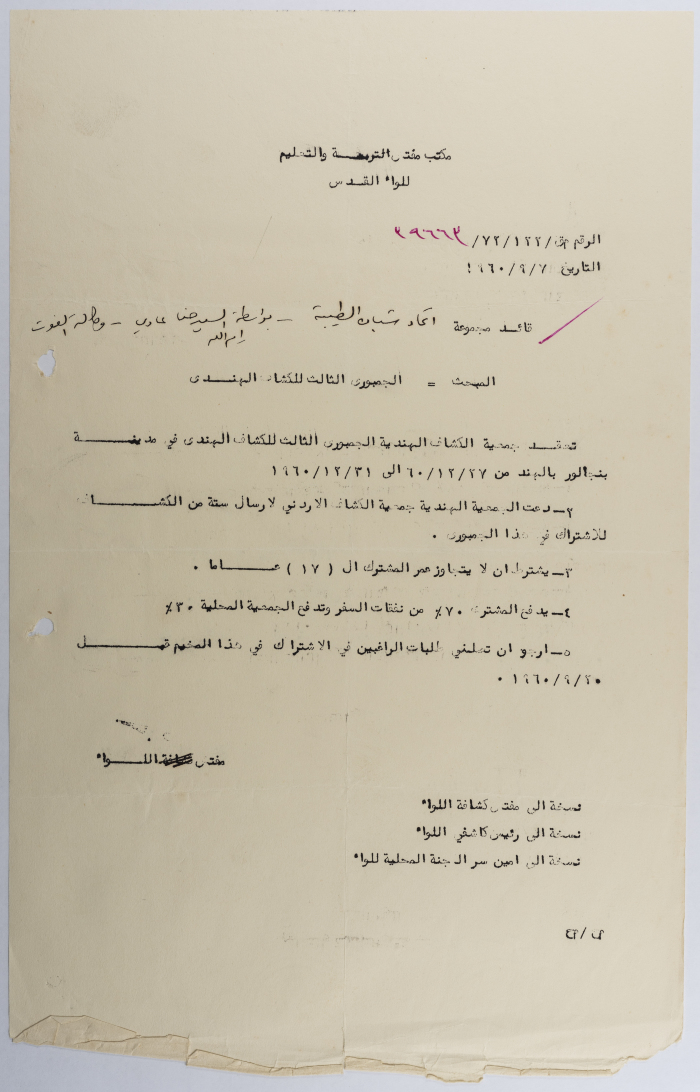 مكتب مفتش التربيــة والتعليم
للواء القدس
الرقم مق/٧٢/١٢٢/٣٩٦٦٣
التاريخ ١٩٦٠/٩/٧
قائد مجموعة اتحاد شباب الطيبة – بواسطة السيد حنا عادي – وكالة الغوث
رام الله
المبحث = الجمبورى الثالث للكشاف الهندى
تعقــد جمعية الكشاف الهندية الجمبورى الثالث للكشاف الهندى في مدينــــــة
بنجالور بالهند من ٦٠/١٢/٢٧ الى ١٩٦٠/١٢/٣١
٢– دعت الجمعية الهندية جمعية الكشاف الاردني لارسال ستة من الكشــــــاف
للاشتراك في هذا الجمبورى .
٣– يشترط ان لا يتجاوز عمر المشترك ال ( ١٧ ) عـــاما .
٤– يدفع المشترك ٧٠٪ من نفقات السفر وتدفع الجمعية المحلية ٣٠٪
٥– ارجو ان تصلني طلبات الراغبين في الاشتراك في هذا المخيم قبــــــل
١٩٦٠/٩/٢٠ .
مفتش اللـــواء
نسخة الى مفتش كشافة اللواء
نسخة الى رئيس كاشفي اللواء
نسخة الى امين سر الجنة المحلية للواء